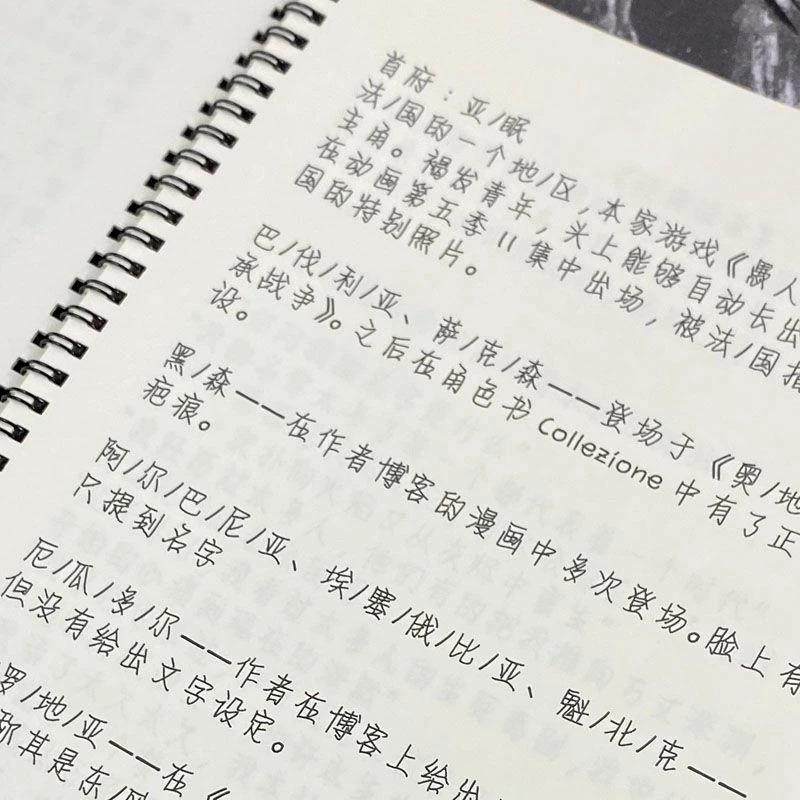 首府：亚/眠
法/国的一个地/区，本家游戏《愚人
主角。褐发青年，头上能够自动长出
在动画第五季11集中出场，被法/国指
国的特别照片。
巴/伐/利/亚、萨/克/森——登场于《奥/地
承战争》。之后在角色书 Collezione 中有了正
设。
黑/森——在作者博客的漫画中多次登场。脸上有
疤痕。
阿/尔/巴/尼/亚、埃/塞/俄/比/亚、魁/北/克——
只提到名字
厄/瓜/多/尔——作者在博客上给出
但没有给出文字设定。
罗/地/亚——在《
称其是东/